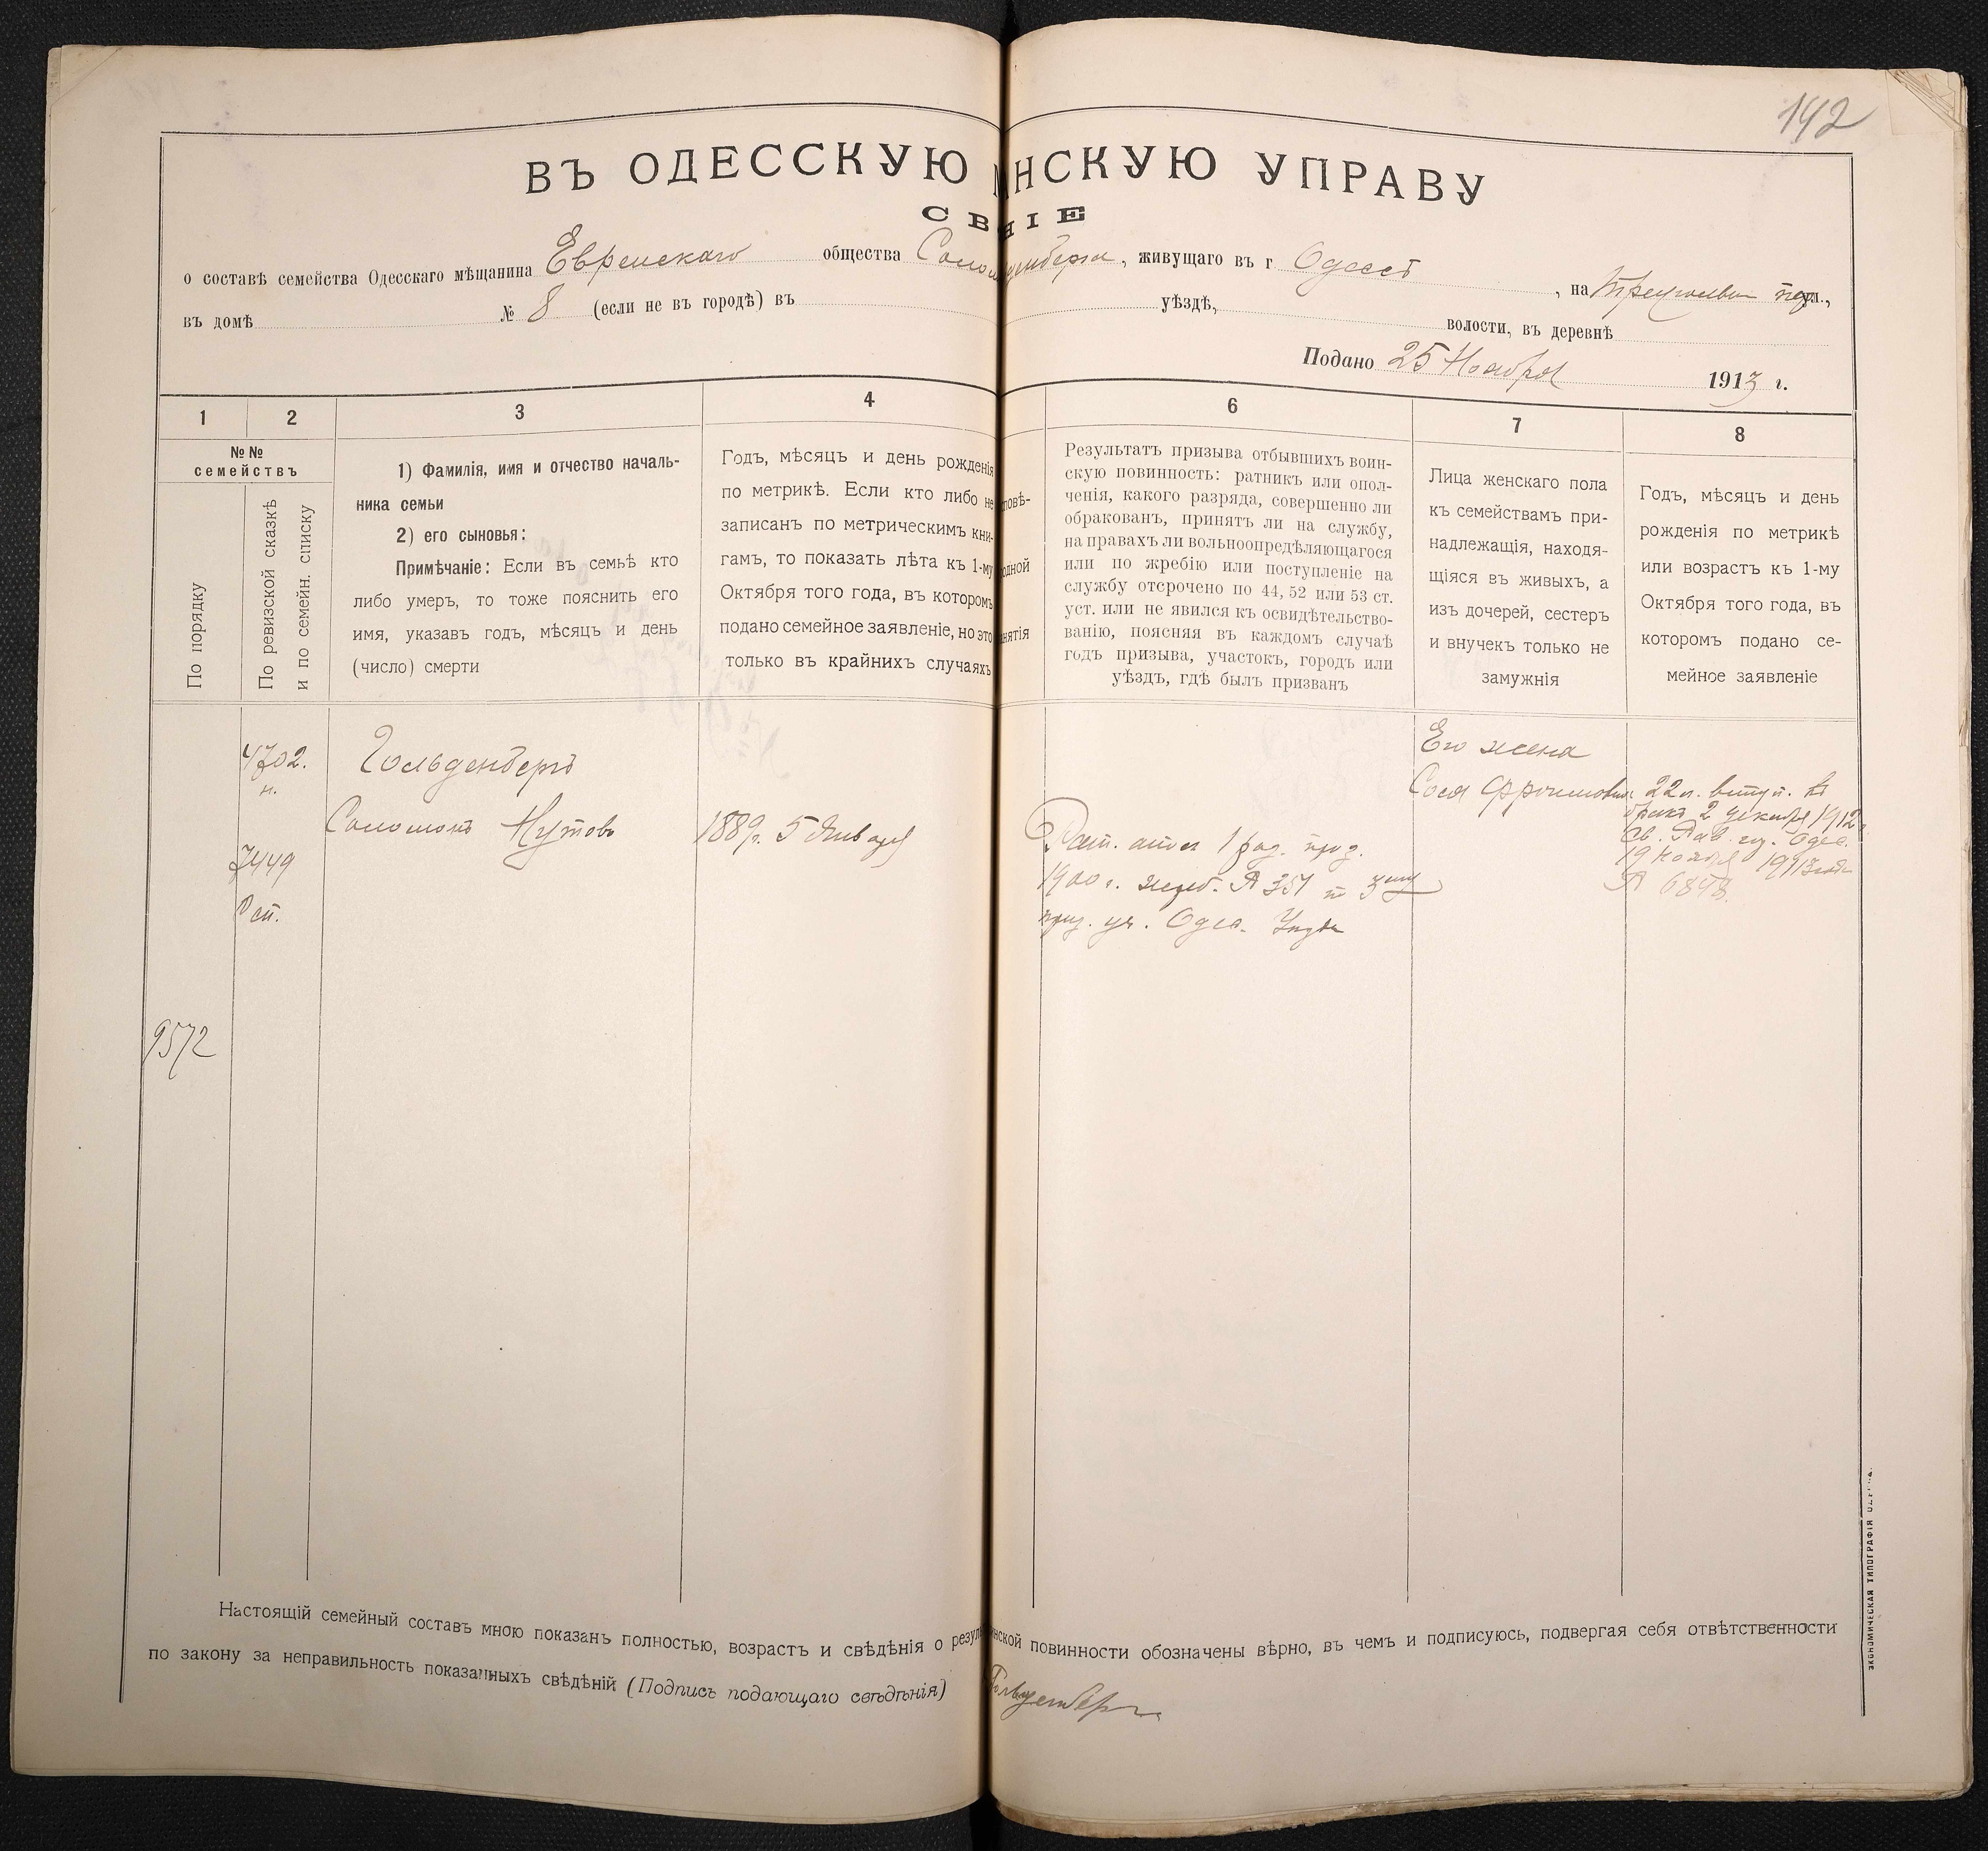 142
ВЪ ОДЕССКУЮ НСКУЮ УПРАВУ
СВ НІЕ
о составѣ семейства Одесскаго мѣщанина Еврейскаго общества Солом денберга, живущаго въ г Одессѣ, на Треугольн. пер ул.,
въ домѣ № 8 (если не въ городѣ) въ уѣздѣ, волости, въ деревнѣ
Подано 25 Ноября 1913 г.
1 2 3 4 6 7 8
№№
семействъ
По порядку
По ревизской сказкѣ
и по семейн. списку
1) Фамилія, имя и отчество началь-
ника семьи
2) его сыновья:
Примѣчаніе: Если въ семьѣ кто
либо умеръ, то тоже пояснить его
имя, указавъ годъ, мѣсяцъ и день
(число) смерти
Годъ, мѣсяцъ и день рожденія
по метрикѣ. Если кто либо не
записанъ по метрическимъ кни-
гамъ, то показать лѣта къ 1-му
Октября того года, въ которомъ
подано семейное заявленіе, но это
только въ крайнихъ случаяхъ
повѣ-
одной
нятія
Результатъ призыва отбывшихъ воин-
скую повинность: ратникъ или опол-
ченія, какого разряда, совершенно ли
обракованъ, принятъ ли на службу,
на правахъ ли вольноопредѣляющагося
или по жребію или поступленіе на
службу отсрочено по 44, 52 или 53 ст.
уст. или не явился къ освидѣтельство-
ванію, поясняя въ каждомъ случаѣ
годъ призыва, участокъ, городъ или
уѣздъ, гдѣ былъ призванъ
Лица женскаго пола
къ семействамъ при-
надлежащія, находя-
щіяся въ живыхъ, а
изъ дочерей, сестеръ
и внучек только не
замужнія
Годъ, мѣсяцъ и день
рожденія по метрикѣ
или возрастъ къ 1-му
Октября того года, въ
которомъ подано се-
мейное заявленіе
4702.
н.
7449
9572
Гольденбергъ
Соломонъ Нутовъ
1889г. 5 Января
Рат. опол 1 раз. приз.
1900 г. жереб. № 357 по 3ему
приз. уч. Одес.
Его жена
Сося Фроимовна
22 л. вступ. въ
бракъ 2 декабря 1912
Св. Рав. гор. Одес.
19 Ноября 1913
№ 6848.
Настоящій семейный составъ мною показанъ полностью, возрастъ и свѣдѣнія о резуль инской повинности обозначены вѣрно, въ чемъ и подписуюсь, подвергая себя отвѣтственности
по закону за неправильность показанныхъ свѣдѣній (Подпись подающаго свѣдѣнія) Гольденберг
ЭКОНОМИЧЕСКАЯ ТИПОГРАФІЯ